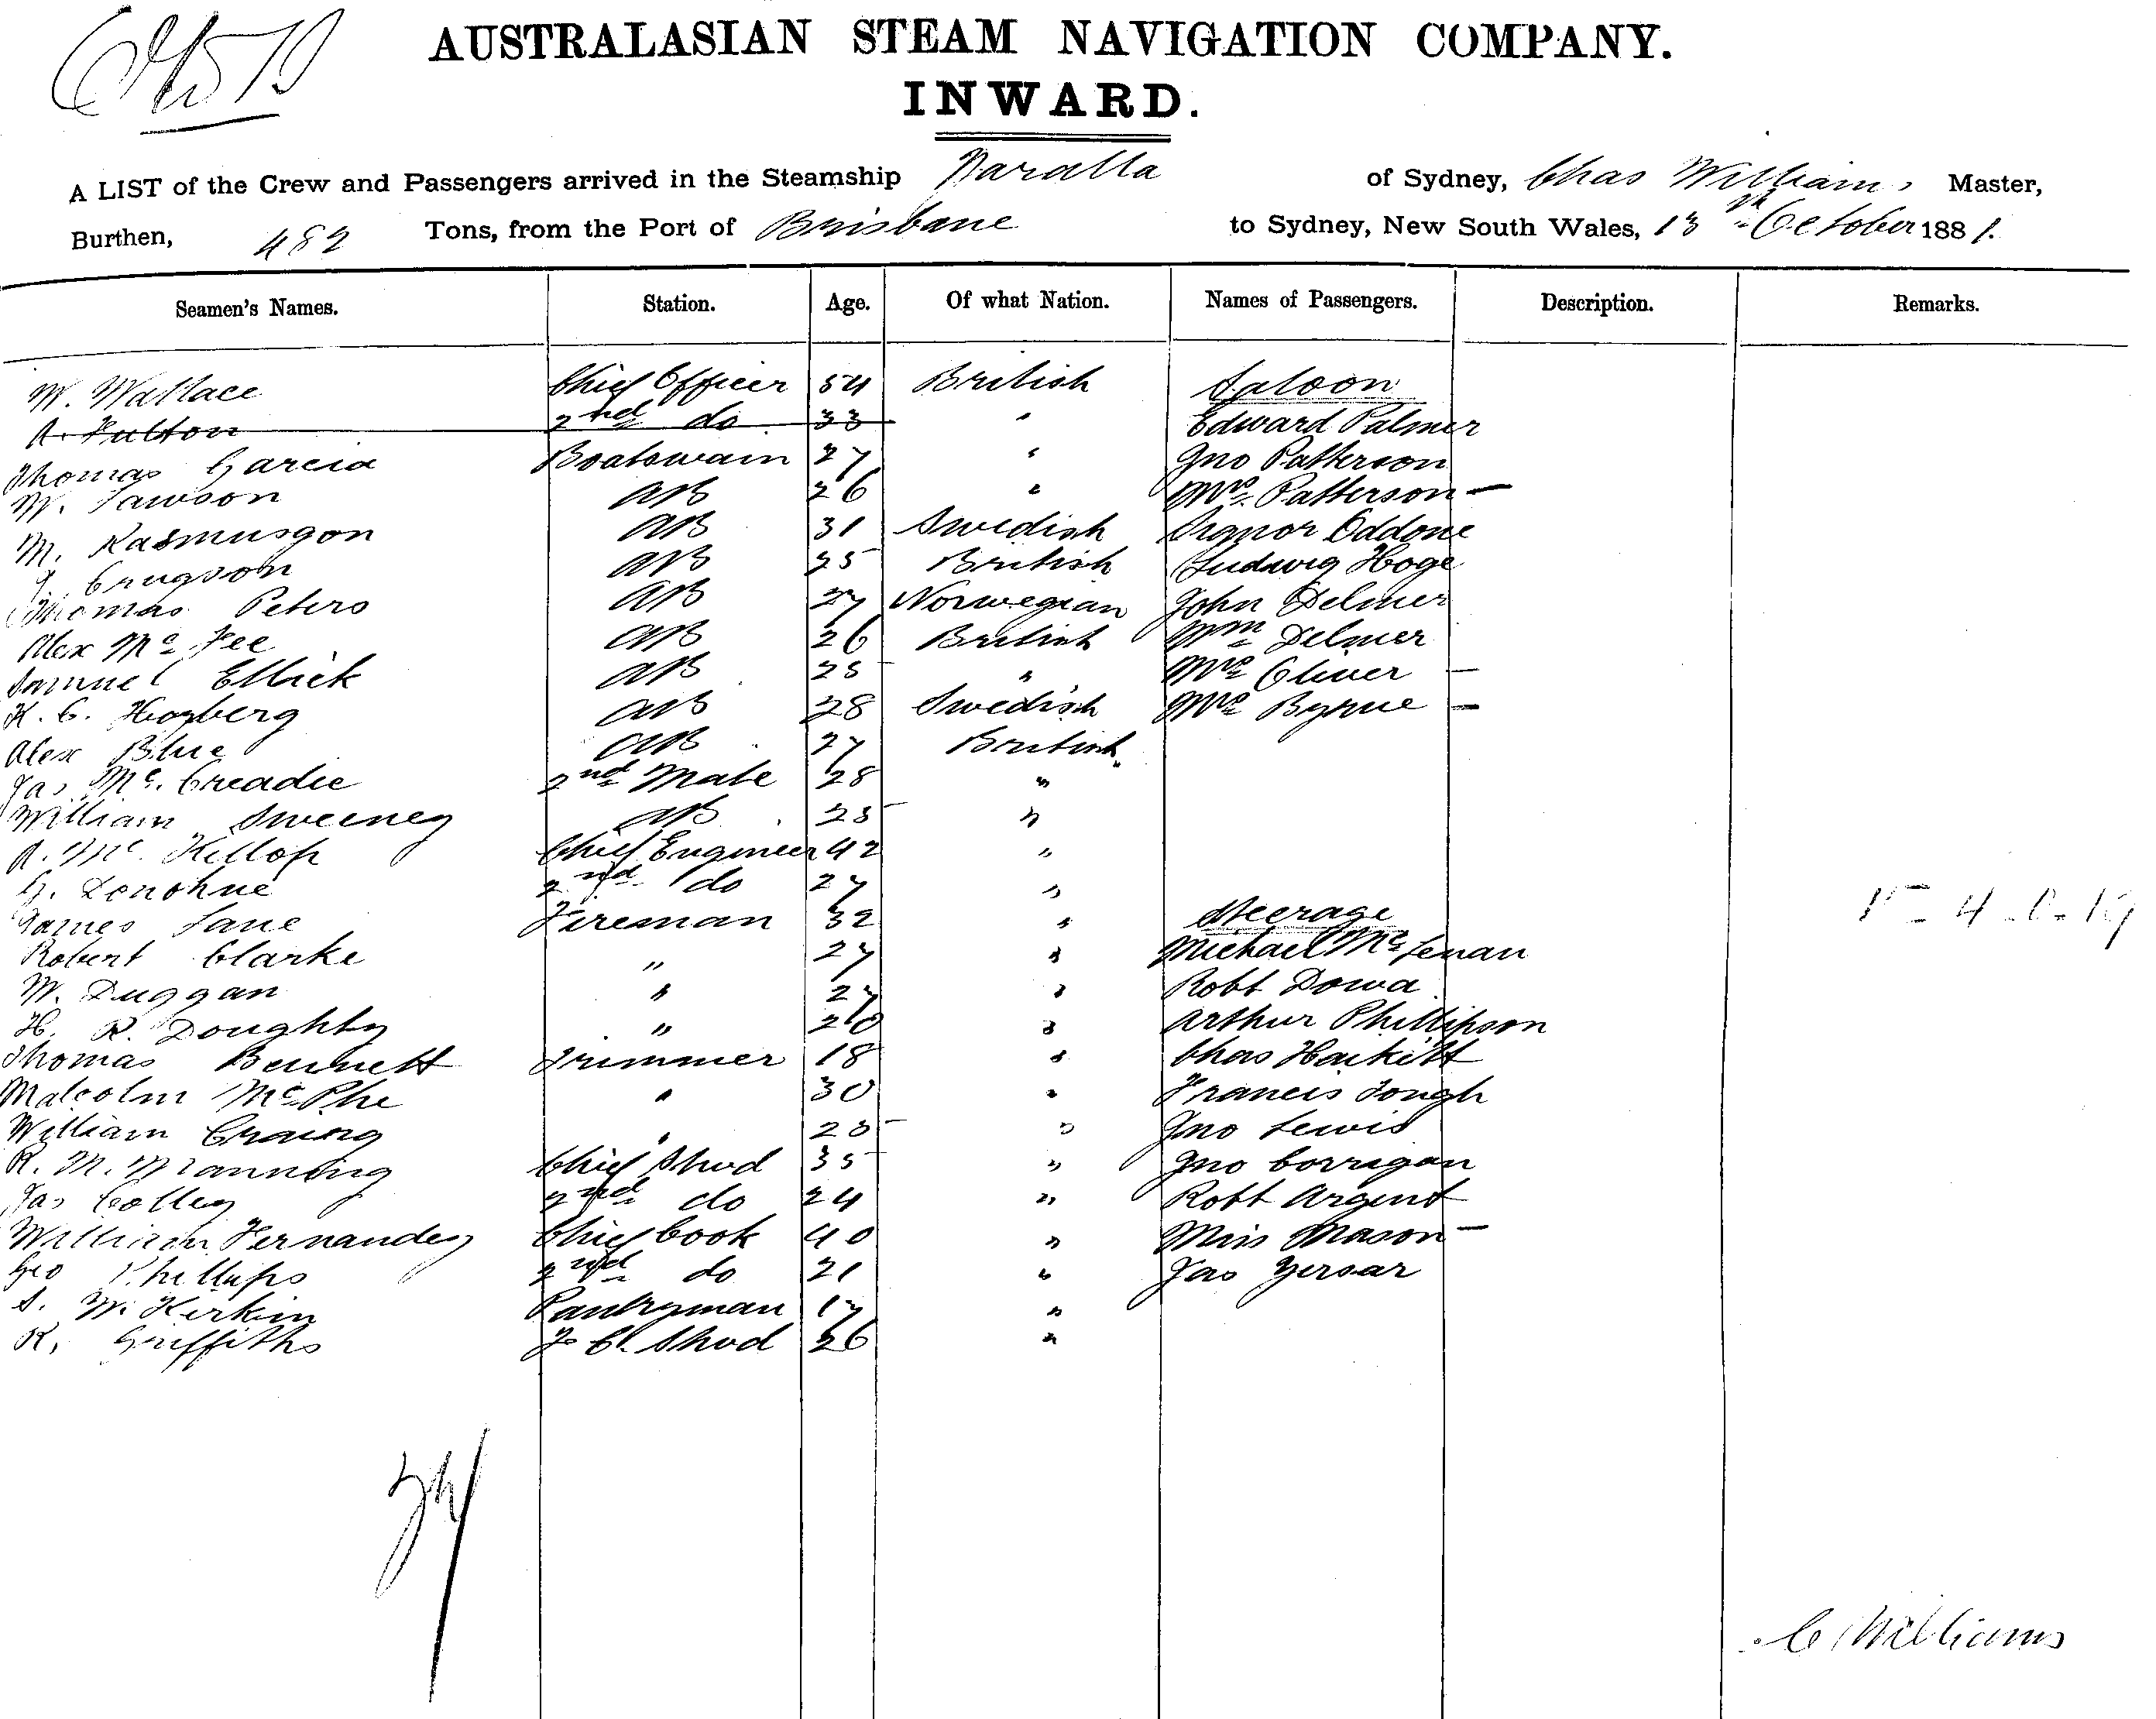 AUSTRALASIAN STEAM NAVIGATION COMPANY.
INWARD.
A LIST of the Crew and Passengers arrived in the Steamship Paralla of Sydney, Chas Williams Master,
Burthen, 482 Tons, from the Port of Brisbane to Sydney, New South Wales, 13th October 1881.
Seamen's Names. Station. Age. Of what Nation. Names of Passengers. Description. Remarks.
W. Wallace Chief Officer 54 British Saloon
A. Fulton 2nd do 33 " Edward Palmer
Thomas Garcia Boatswain 27 " Jno Patterson
W. Lawson AB 26 " Mrs Patterson —
M. Rasmusson AB 31 Swedish Signor Oddone
AB 25 British Ludwig Hoge
Thomas Peters AB 27 Norwegian John Delmer
Alex Mc Fee AB 26 British Delmer
Samuel Ellick AB 25 " Mrs Oliver —
K. C. Hogberg AB 28 Swedish Mrs Byrne —
Alex Blue AB 27 British
Jas Mc. Creadie 2nd Mate 28 "
William Sweeney AB 25 "
A. Mc. Killop Chief Engineer 42 "
G. Donohue 2nd do 27 "
James Lane Fireman 32 " Steerage
Robert Clarke " 27 " Michael Mc Lenan
W. Duggan " 27 " Robt Dowd
H. R. Doughty " " Arthur Phillipson
Thomas Bennett Trimmer 18 " Chas
Malcolm Mc Phe " 30 " Francis Tough
William " 25 " Jno Lewis
R. M. Manning Chief Stwd 35 " Jno Corrigan
Jas Colley 2nd do 24 " Robt Argent
William Fernandez Chief Cook 40 " Miss Mason —
Geo Phillips 2nd do 21 " Jas
S. W. Kerkin Pantryman 17 "
R. Griffiths F. Cl. Stwd 26 "
C Williams